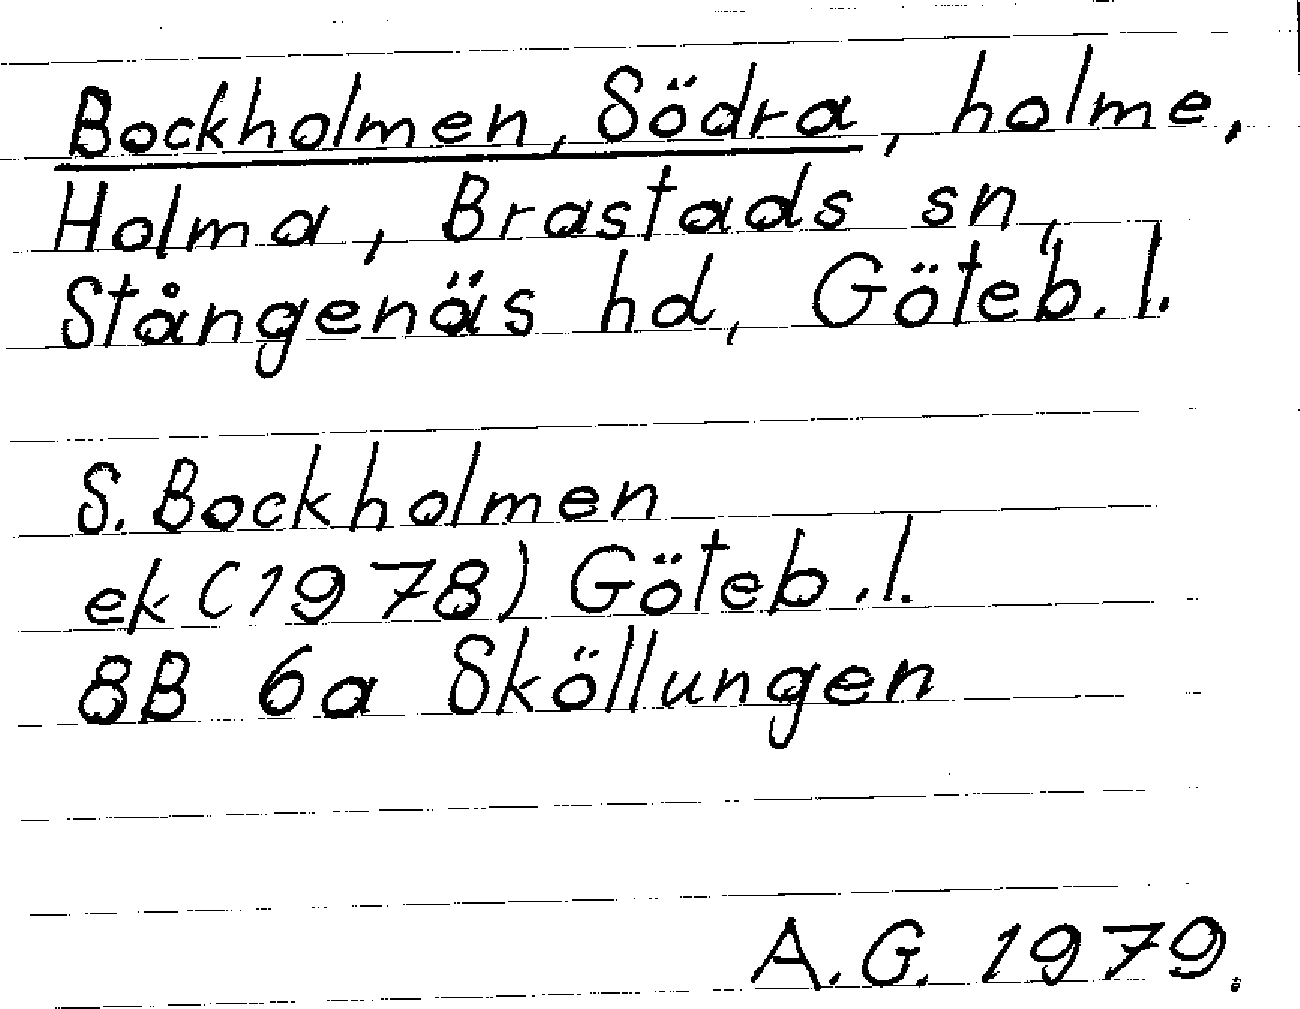 Bockholmen, Södra, holme,
Holma, Brastads sn,
Stångenäs hd, Göteb. l.
S. Bockholmen
ek (1978) Göteb. l.
8B 6a Sköllungen
A.G. 1979.